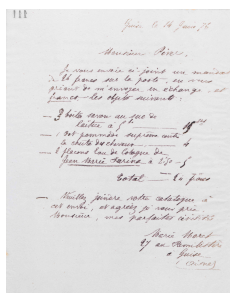 Guise le 26 Janv. 76
Monsieur Piver,
Je vous envoie ci-joint un mandat
24 francs sur la poste, en vous
priant de m'envoyer, en échange, et
franco les objets suivants :
— 3 boîtes savon au suc de
laitue à 5
— 1 Pot pommade suprême contre
la chute des cheveux 4
— 2 flacons Eau de Cologne de
Jean Marie Farina à 2,50 5
Total
— Veuillez joindre votre catalogue à
cet envoi, et agréez je vous prie
Monsieur, mes parfaites civilités
Marie
à Guise